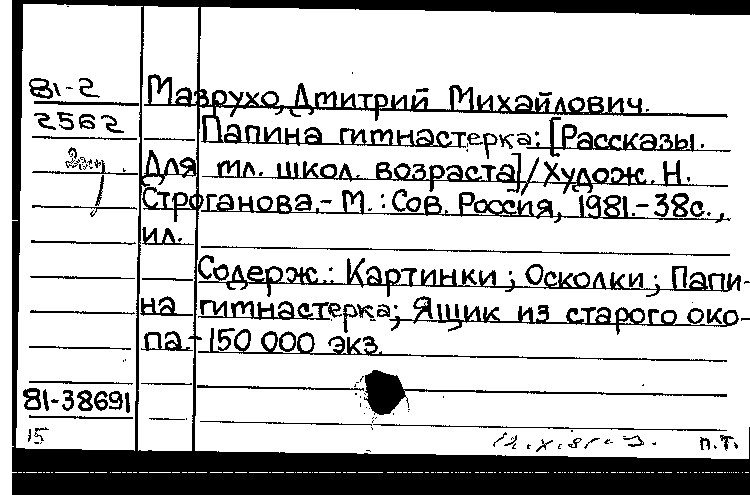 81-2
Мазрухо, Дмитрий Михайлович.
2562
Папина гитнастерка: [Рассказы.
Для тл. школ. возраста]/Худож. Н.
Строганова.- М.: Сов. Россия, 1981.-38с.,
ил.
Содерж.: Картинки; Осколки; Папи-
на гитнастерка; Ящик из старого око-
па.-150 000 экз.
81-38691
15
п.т.